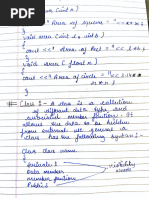 (int a)
cout << "Area of square = " << a*a;
}
void area (int l, int b)
{
cout << "Area of Rect = " << l*b;
}
void area ( float r)
{
cout << "Area of circle = " << 3.14*
r*r;
}
# Class :- A class is a collection
of different data type and
member function. It
allows the data to be hidden
from external use general a
class has the following syntax:-
Class class name
{
Private:
Data member
member function
Public: